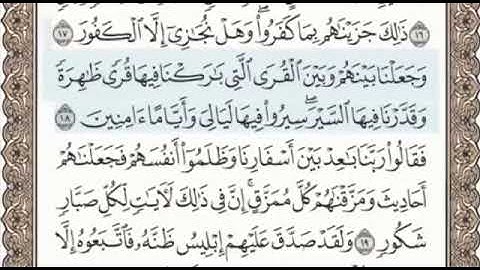 ذَٰلِكَ جَزَيْنَاهُم بِمَا كَفَرُوا۟ ۖ وَهَلْ نُجَازِىٓ إِلَّا ٱلْكَفُورَ ١٧
وَجَعَلْنَا بَيْنَهُمْ وَبَيْنَ ٱلْقُرَى ٱلَّتِى بَارَكْنَا فِيهَا قُرًى ظَاهِرَةً
وَقَدَّرْنَا فِيهَا ٱلسَّيْرَ ۖ سِيرُوا۟ فِيهَا لَيَالِىَ وَأَيَّامًا ءَامِنِينَ ١٨
فَقَالُوا۟ رَبَّنَا بَاعِدْ بَيْنَ أَسْفَارِنَا وَظَلَمُوٓا۟ أَنفُسَهُمْ فَجَعَلْنَاهُمْ
أَحَادِيثَ وَمَزَّقْنَاهُمْ كُلَّ مُمَزَّقٍ ۚ إِنَّ فِى ذَٰلِكَ لَـَٔايَاتٍ لِّكُلِّ صَبَّارٍ
شَكُورٍ ١٩ وَلَقَدْ صَدَّقَ عَلَيْهِمْ إِبْلِيسُ ظَنَّهُۥ فَٱتَّبَعُوهُ إِلَّا